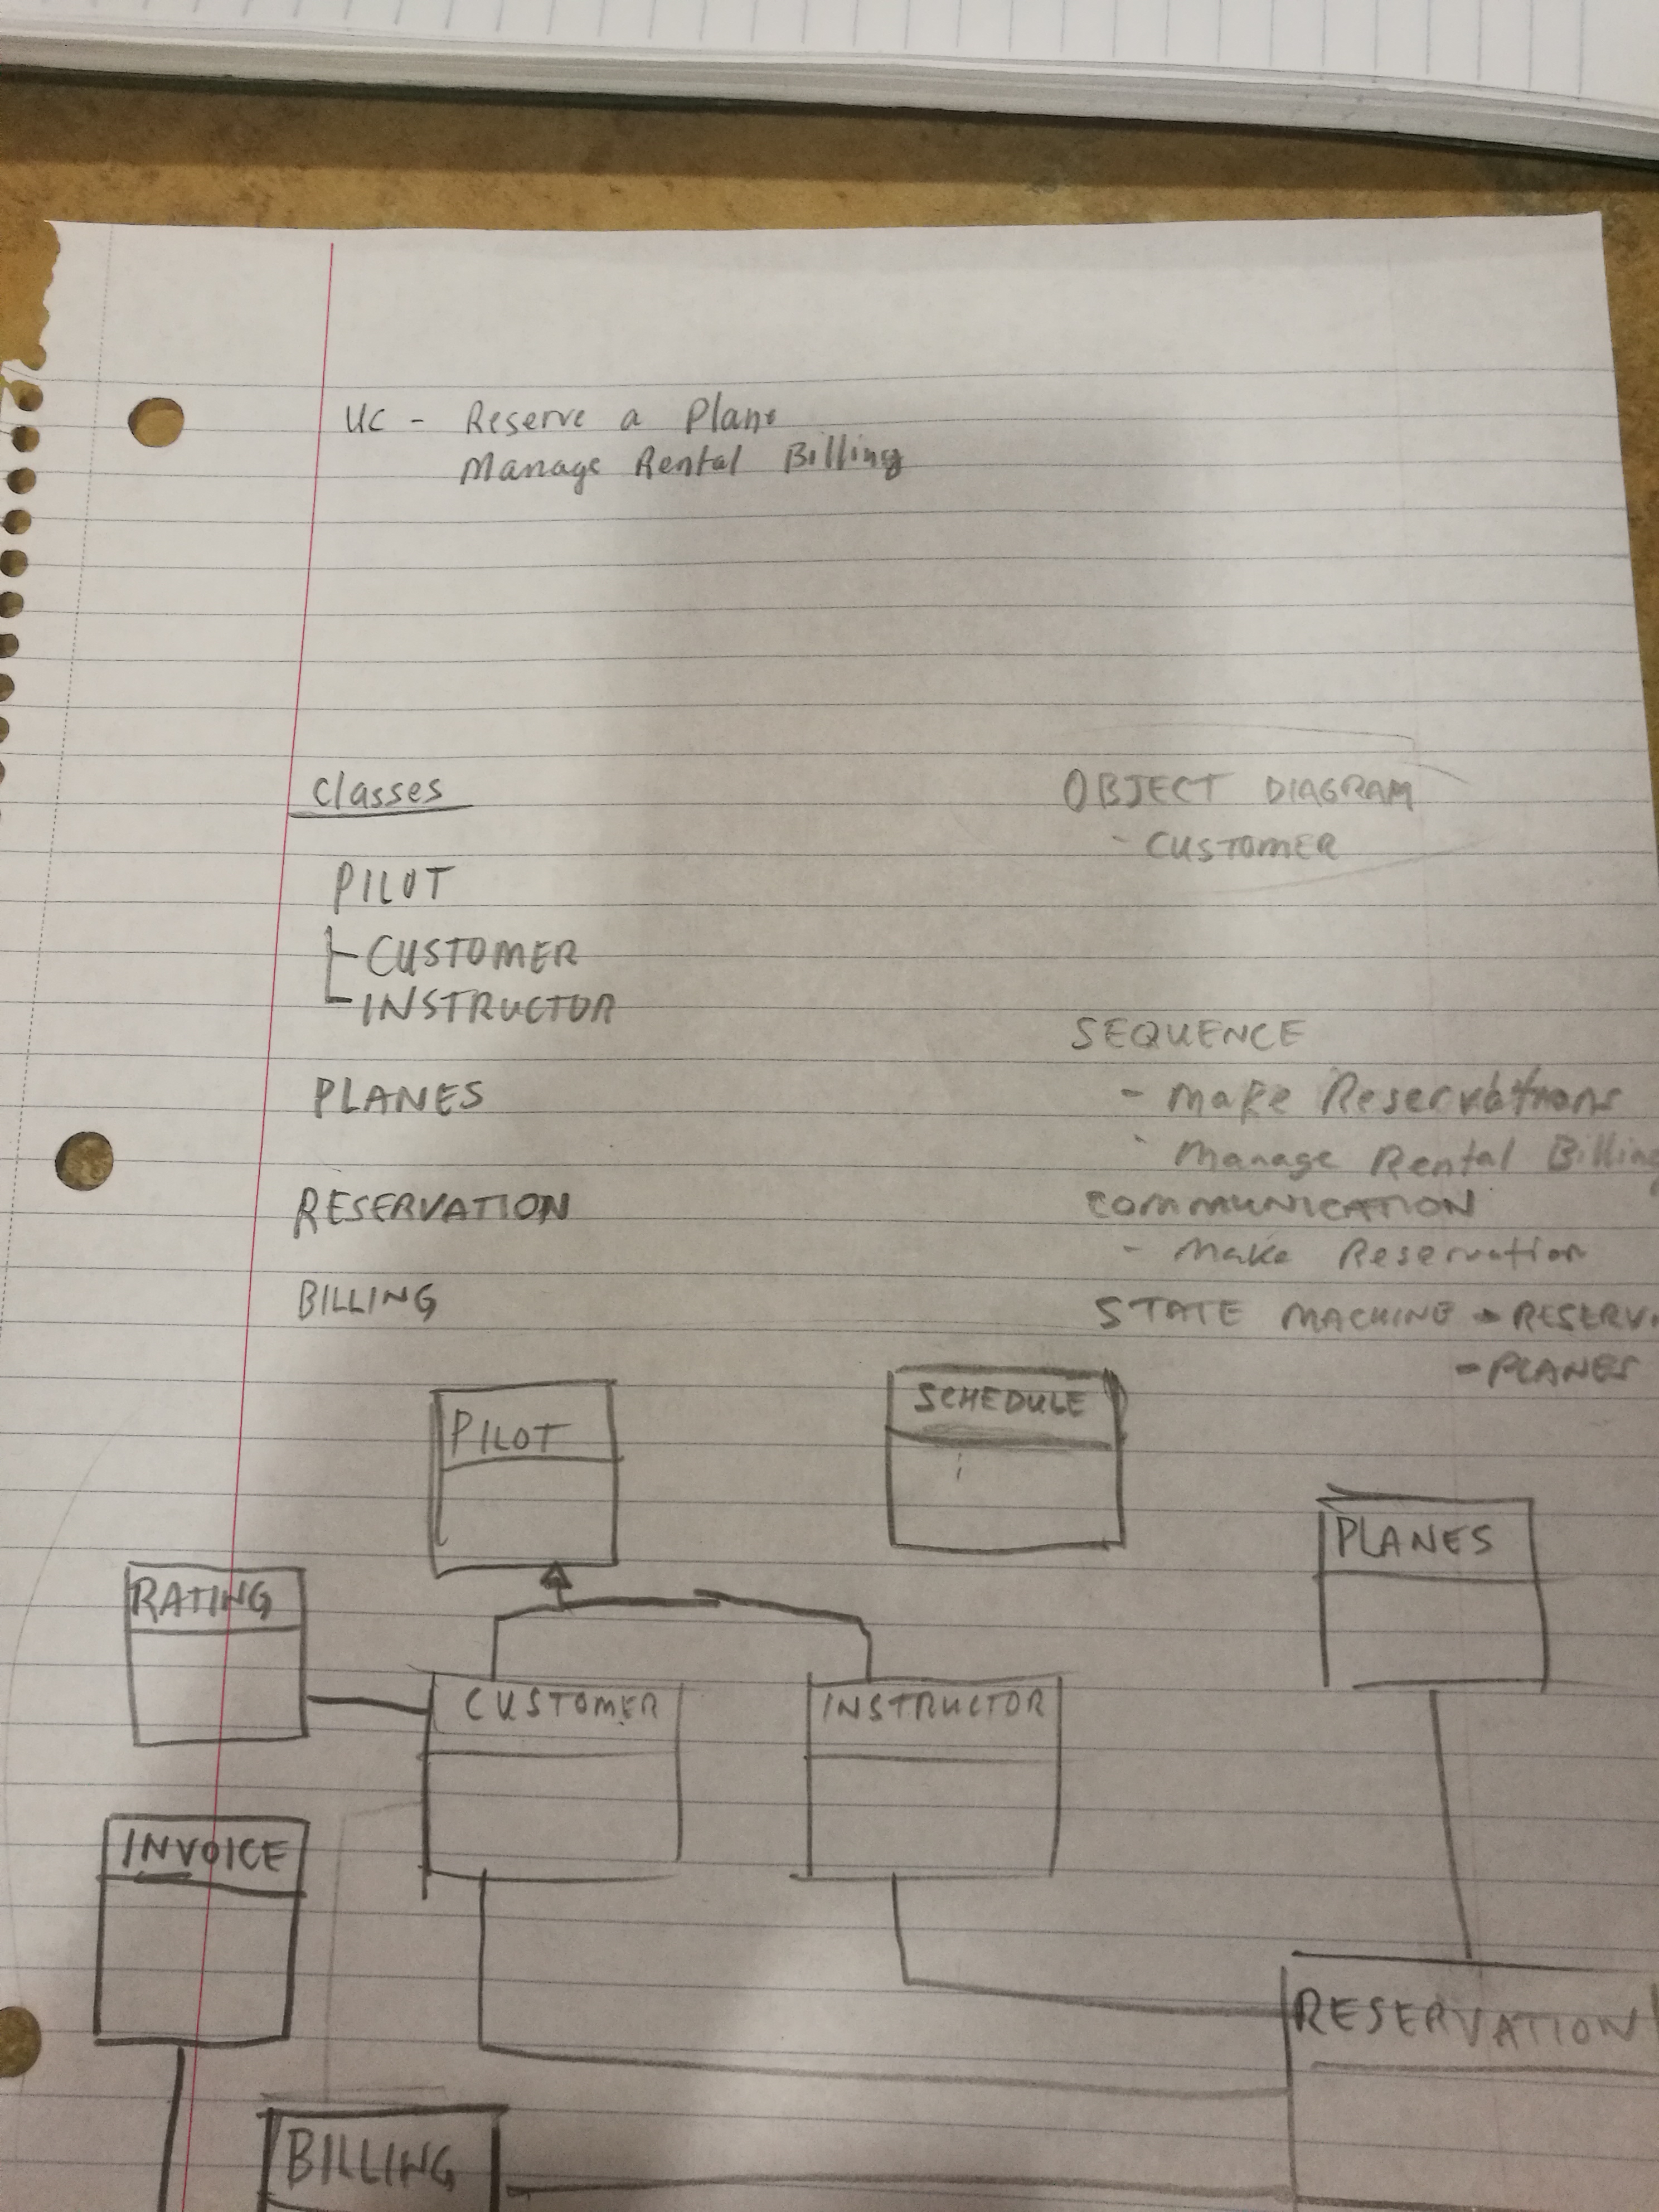 UC - Reserve a Plane
Manage Rental Billing
Classes
PILOT
CUSTOMER
INSTRUCTOR
PLANES
RESERVATION
BILLING
OBJECT DIAGRAM
- CUSTOMER
SEQUENCE
- Make Reservations
- Manage Rental Billing
COMMUNICATION
- Make Reservation
STATE MACHINE - RESERV
- PLANES
PILOT
SCHEDULE
PLANES
RATING
CUSTOMER
INSTRUCTOR
INVOICE
RESERVATION
BILLING